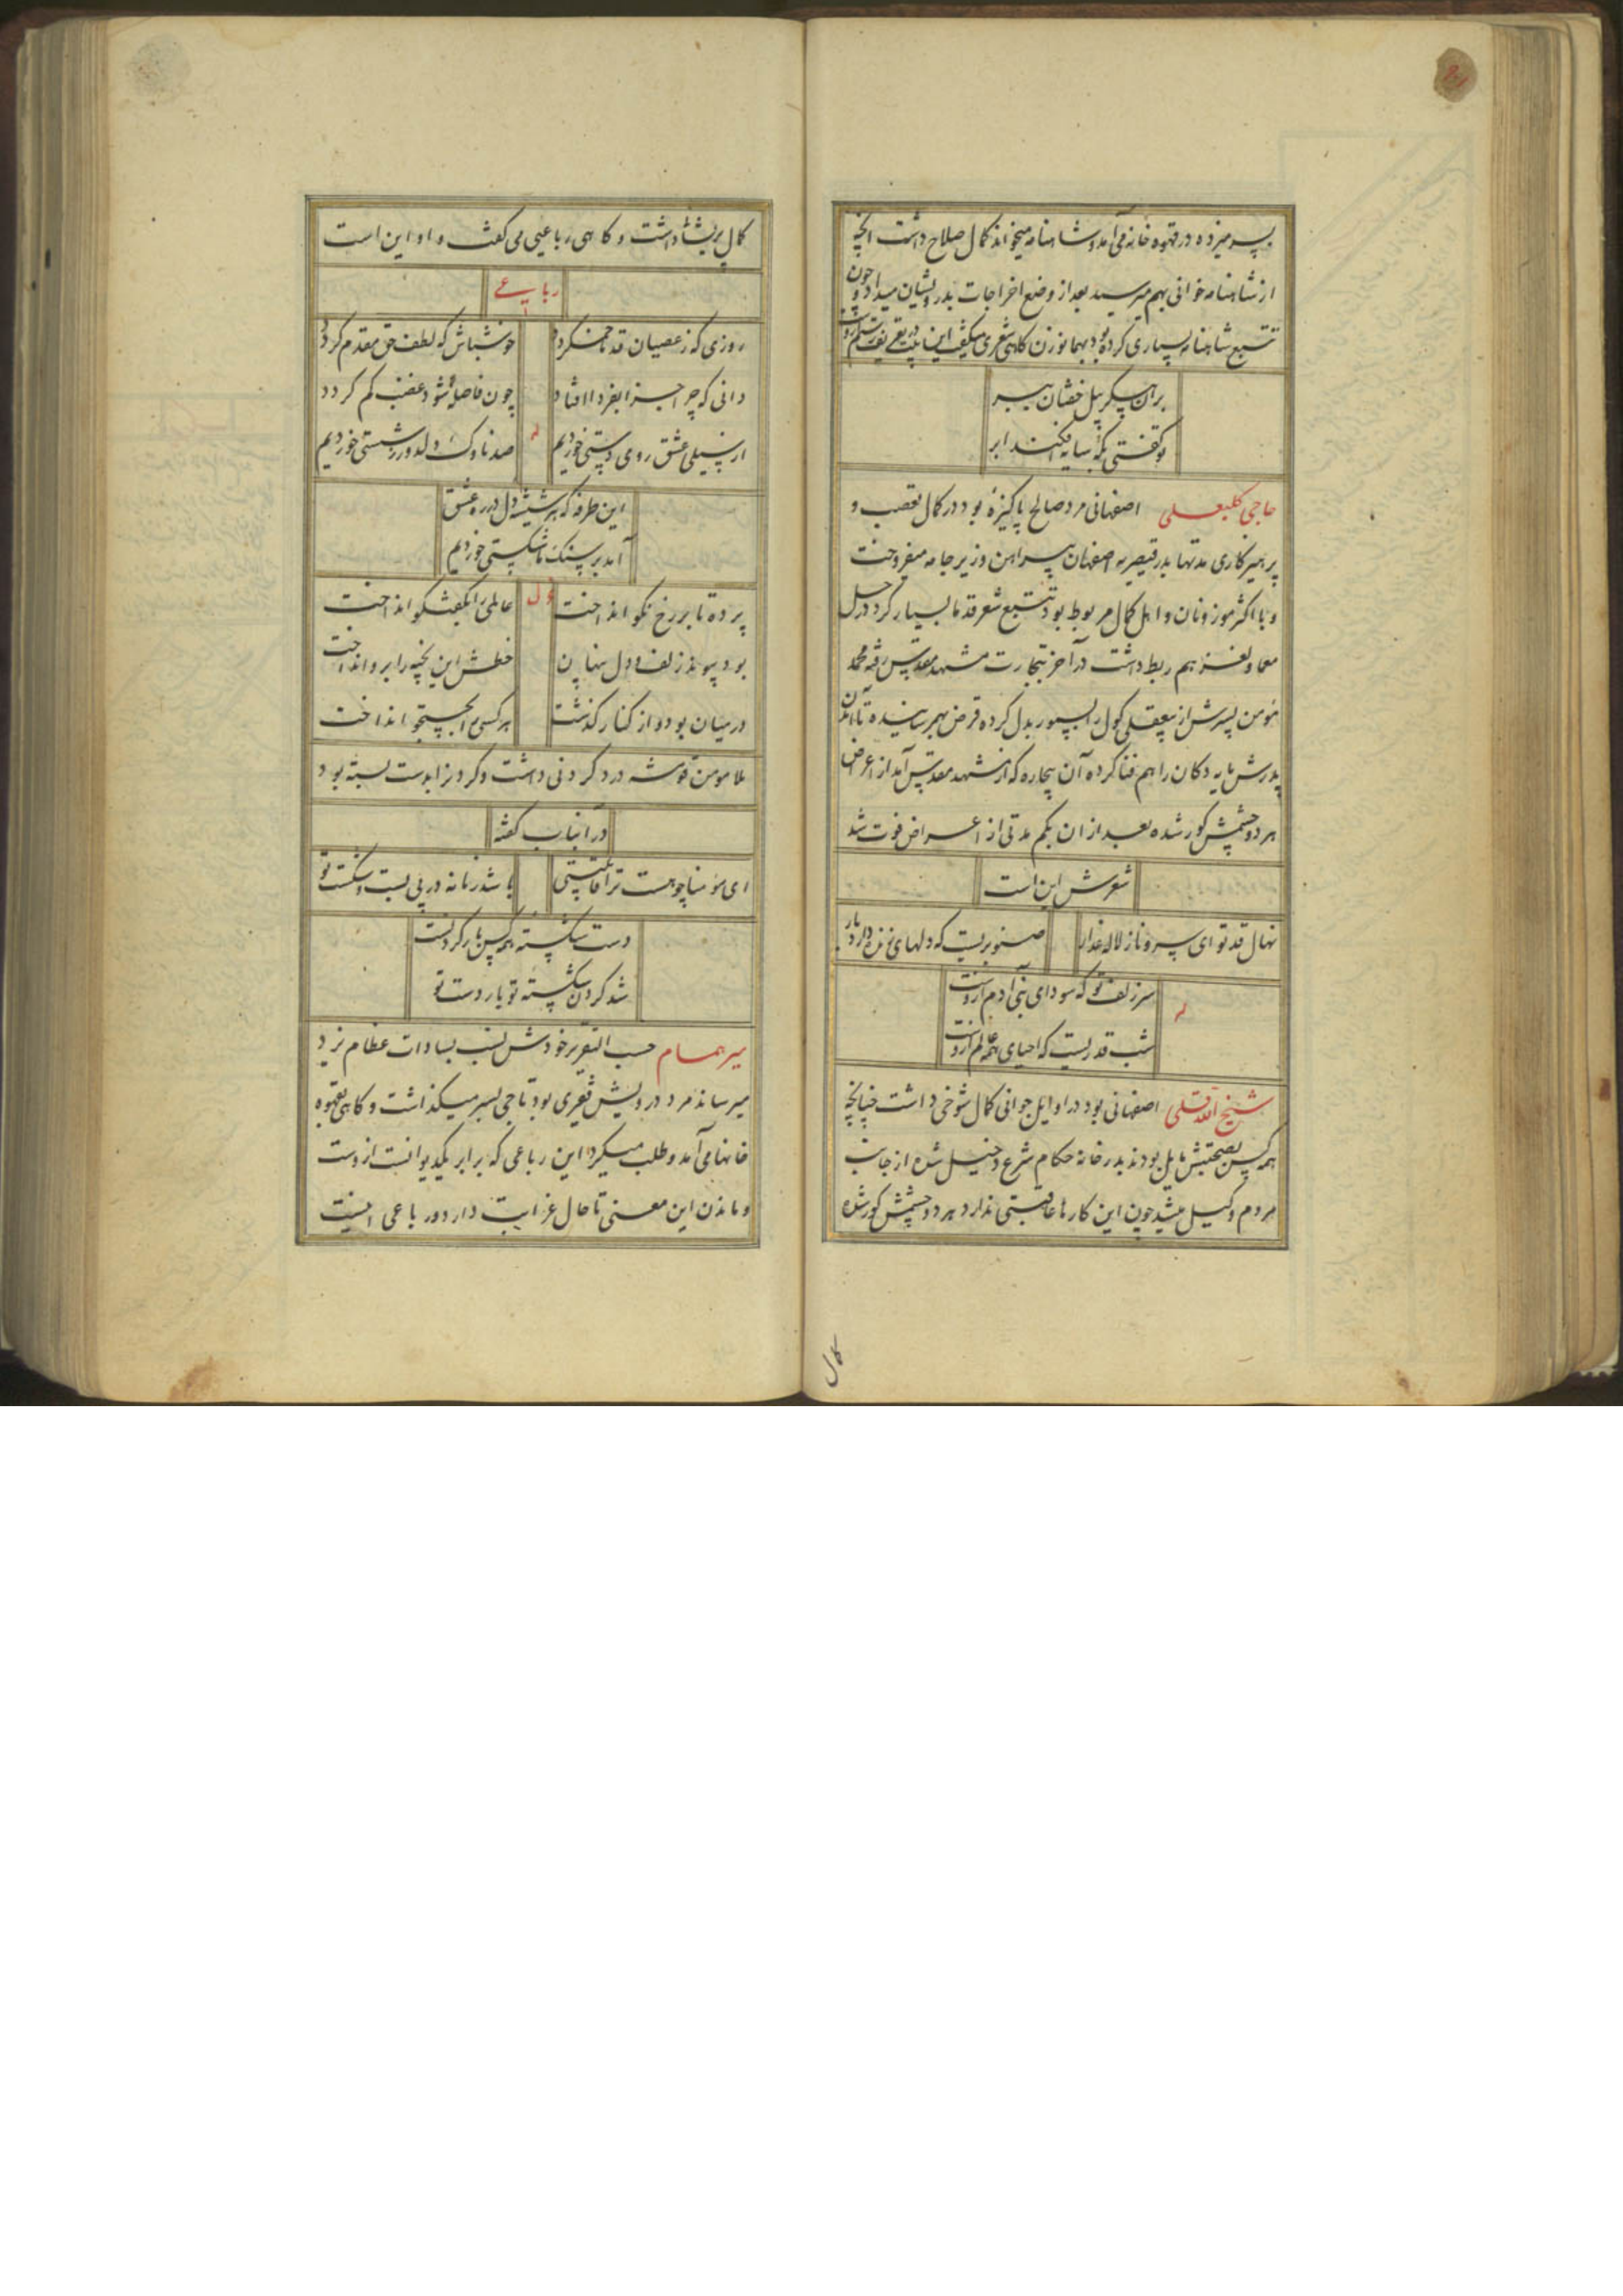 پسر میزده در قهوه خانه می آمد و شاهنامه میخواند کمال صلاح داشت انچه
از شاهنامه خوانی بهم میرسید بعد از وضع اخراجات بدرویشان میداد و چون
تتبع شاهنامه بسیاری کرده بود بهمانوزن کاهی شعری میکفت این بیت
بران پیکر پیل خفتان ببر
تو کفتی که سایه افکند ابر
حاجی کلبعلی اصفهانی مرد صالح پاکیزهٔ بود در کمال تعصب و
پرهیز کاری مدتها در قیصریه اصفهان پیراهن و زیر جامه میفروخت
و با اکثر موزونان و اهل کمال مربوط بود تتبع شعر قدما بسیار کرد در حل
معما و لغز هم ربط داشت در آخر بتجارت مشهد مقدس رفته محمد
مؤمن پسرش از بیعقلی کول را بسپور بدل کرده قرض بهم رسانیده تا آمدن
پدرش مایه دکان را هم فنا کرده آن بیچاره که از مشهد مقدس آمد از اعراض
هر دو چشمش کور شده بعد از ان بکم مدتی از اعراض فوت شد
شعرش این است
نهال قد تو ای سرو ناز لاله عذار
صنوبریست که دلهای خون شده دارد بار
له
سر زلف تو که سودای بنی آدم ازوست
شب قدریست که احیای همه عالم ازوست
شیخ الله قلی اصفهانی بود در اوایل جوانی کمال شوخی داشت چنانچه
همه کس بصحبتش مایل بودند بدر خانه حکام شرع دخیل شده از جانب
مردم وکیل میشد چون این کارها عاقبتی ندارد هر دو چشمش کور شده
کمال
کمال پریشانی داشت و کاهی رباعیی می کفت و او این است
رباعی
روزی که ز عصیان قد ما خم کردد
خوشباش که لطف حق مقدم کردد
دانی که چرا جزا بفردا افتاد
چون فاصله شود غضب کم کردد
له
از سیلی عشق روی دستی خوردیم
صد ناوک دلدوز ز شستی خوردیم
این طرفه که شیشه دل در ره عشق
آمد بر سنک ما شکستی خوردیم
وله
پرده تا بر رخ نکو انداخت
عالمی را بکفتکو انداخت
بود پیوند زلف و دل پنهان
خطش این بخیه را برو انداخت
در میان بود و از کنار کذشت
هر کسی را بجستجو انداخت
ملا مومن قوشه درد کردنی داشت و کردنرا بدست بسته بود
در انباب کفته
ای مؤمنا چو هست ترا قابلیتی
باشد زمانه در پی بست و شکست تو
دست شکسته همه کس بار کردنست
شد کردن شکسته تو بار دست تو
میر همام حسب التقریر خودش نسب بسادات عظام یزد
میرساند مرد درویش فقیری بود تاجی بسر میکذاشت و کاهی بقهوه
خانها می آمد و طلب میکرد این رباعی که برابر یکدیوانست ازوست
و ماندن این معنی تا حال غرابت دارد و رباعی اینست